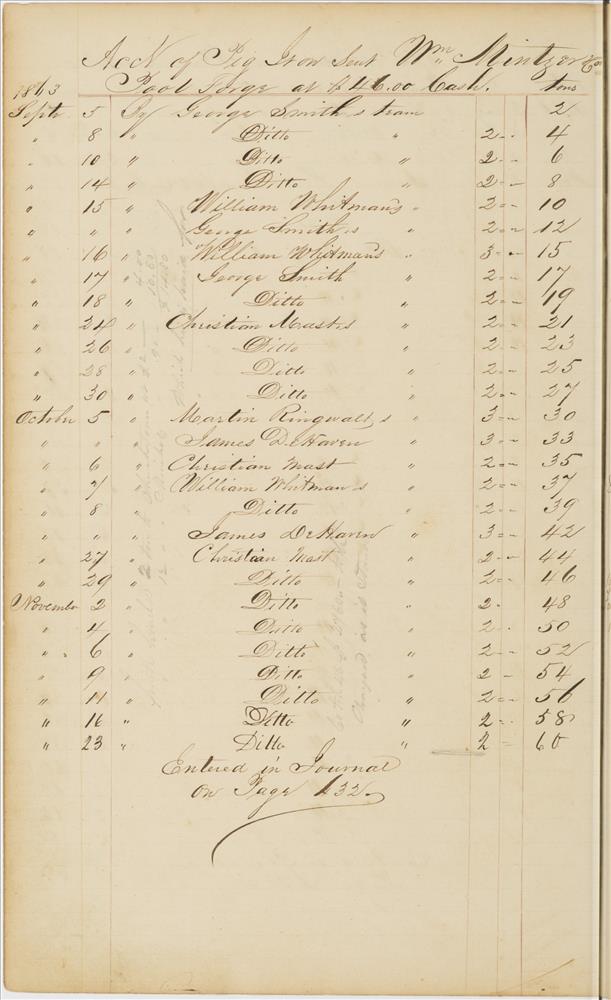 Acct of Pig Iron Sent Wm Mintzer & Co
1863 Pool Forge at $46.00 Cash. tons
Septr 5 By George Smith,s team 2
" 8 " Ditto " 2 -- 4
" 10 " Ditto " 2 -- 6
" 14 " Ditto " 2 -- 8
" 15 " William Whitman's " 2 -- 10
" " " George Smith,s " 2 -- 12
" 16 " William Whitman's " 3 -- 15
" 17 " George Smith " 2 -- 17
" 18 " Ditto " 2 -- 19
" 24 " Christian Mast,s " 2 -- 21
" 26 " Ditto " 2 -- 23
" 28 " Ditto " 2 -- 25
" 30 " Ditto " 2 -- 27
October 5 " Martin Ringwalt,s " 3 -- 30
" " " James DeHaven " 3 -- 33
" 6 " Christian Mast " 2 -- 35
" 7 " William Whitman,s " 2 -- 37
" 8 " Ditto " 2 -- 39
" " " James DeHaven " 3 -- 42
" 27 " Christian Mast " 2 -- 44
" 29 " Ditto " 2 -- 46
November 2 " Ditto " 2 - 48
" 4 " Ditto " 2 -- 50
" 6 " Ditto " 2 -- 52
" 9 " Ditto " 2 - 54
" 11 " Ditto " 2 -- 56
" 16 " Ditto " 2 -- 58
" 23 " Ditto " 2 - 60
Entered in Journal
on Page 132.